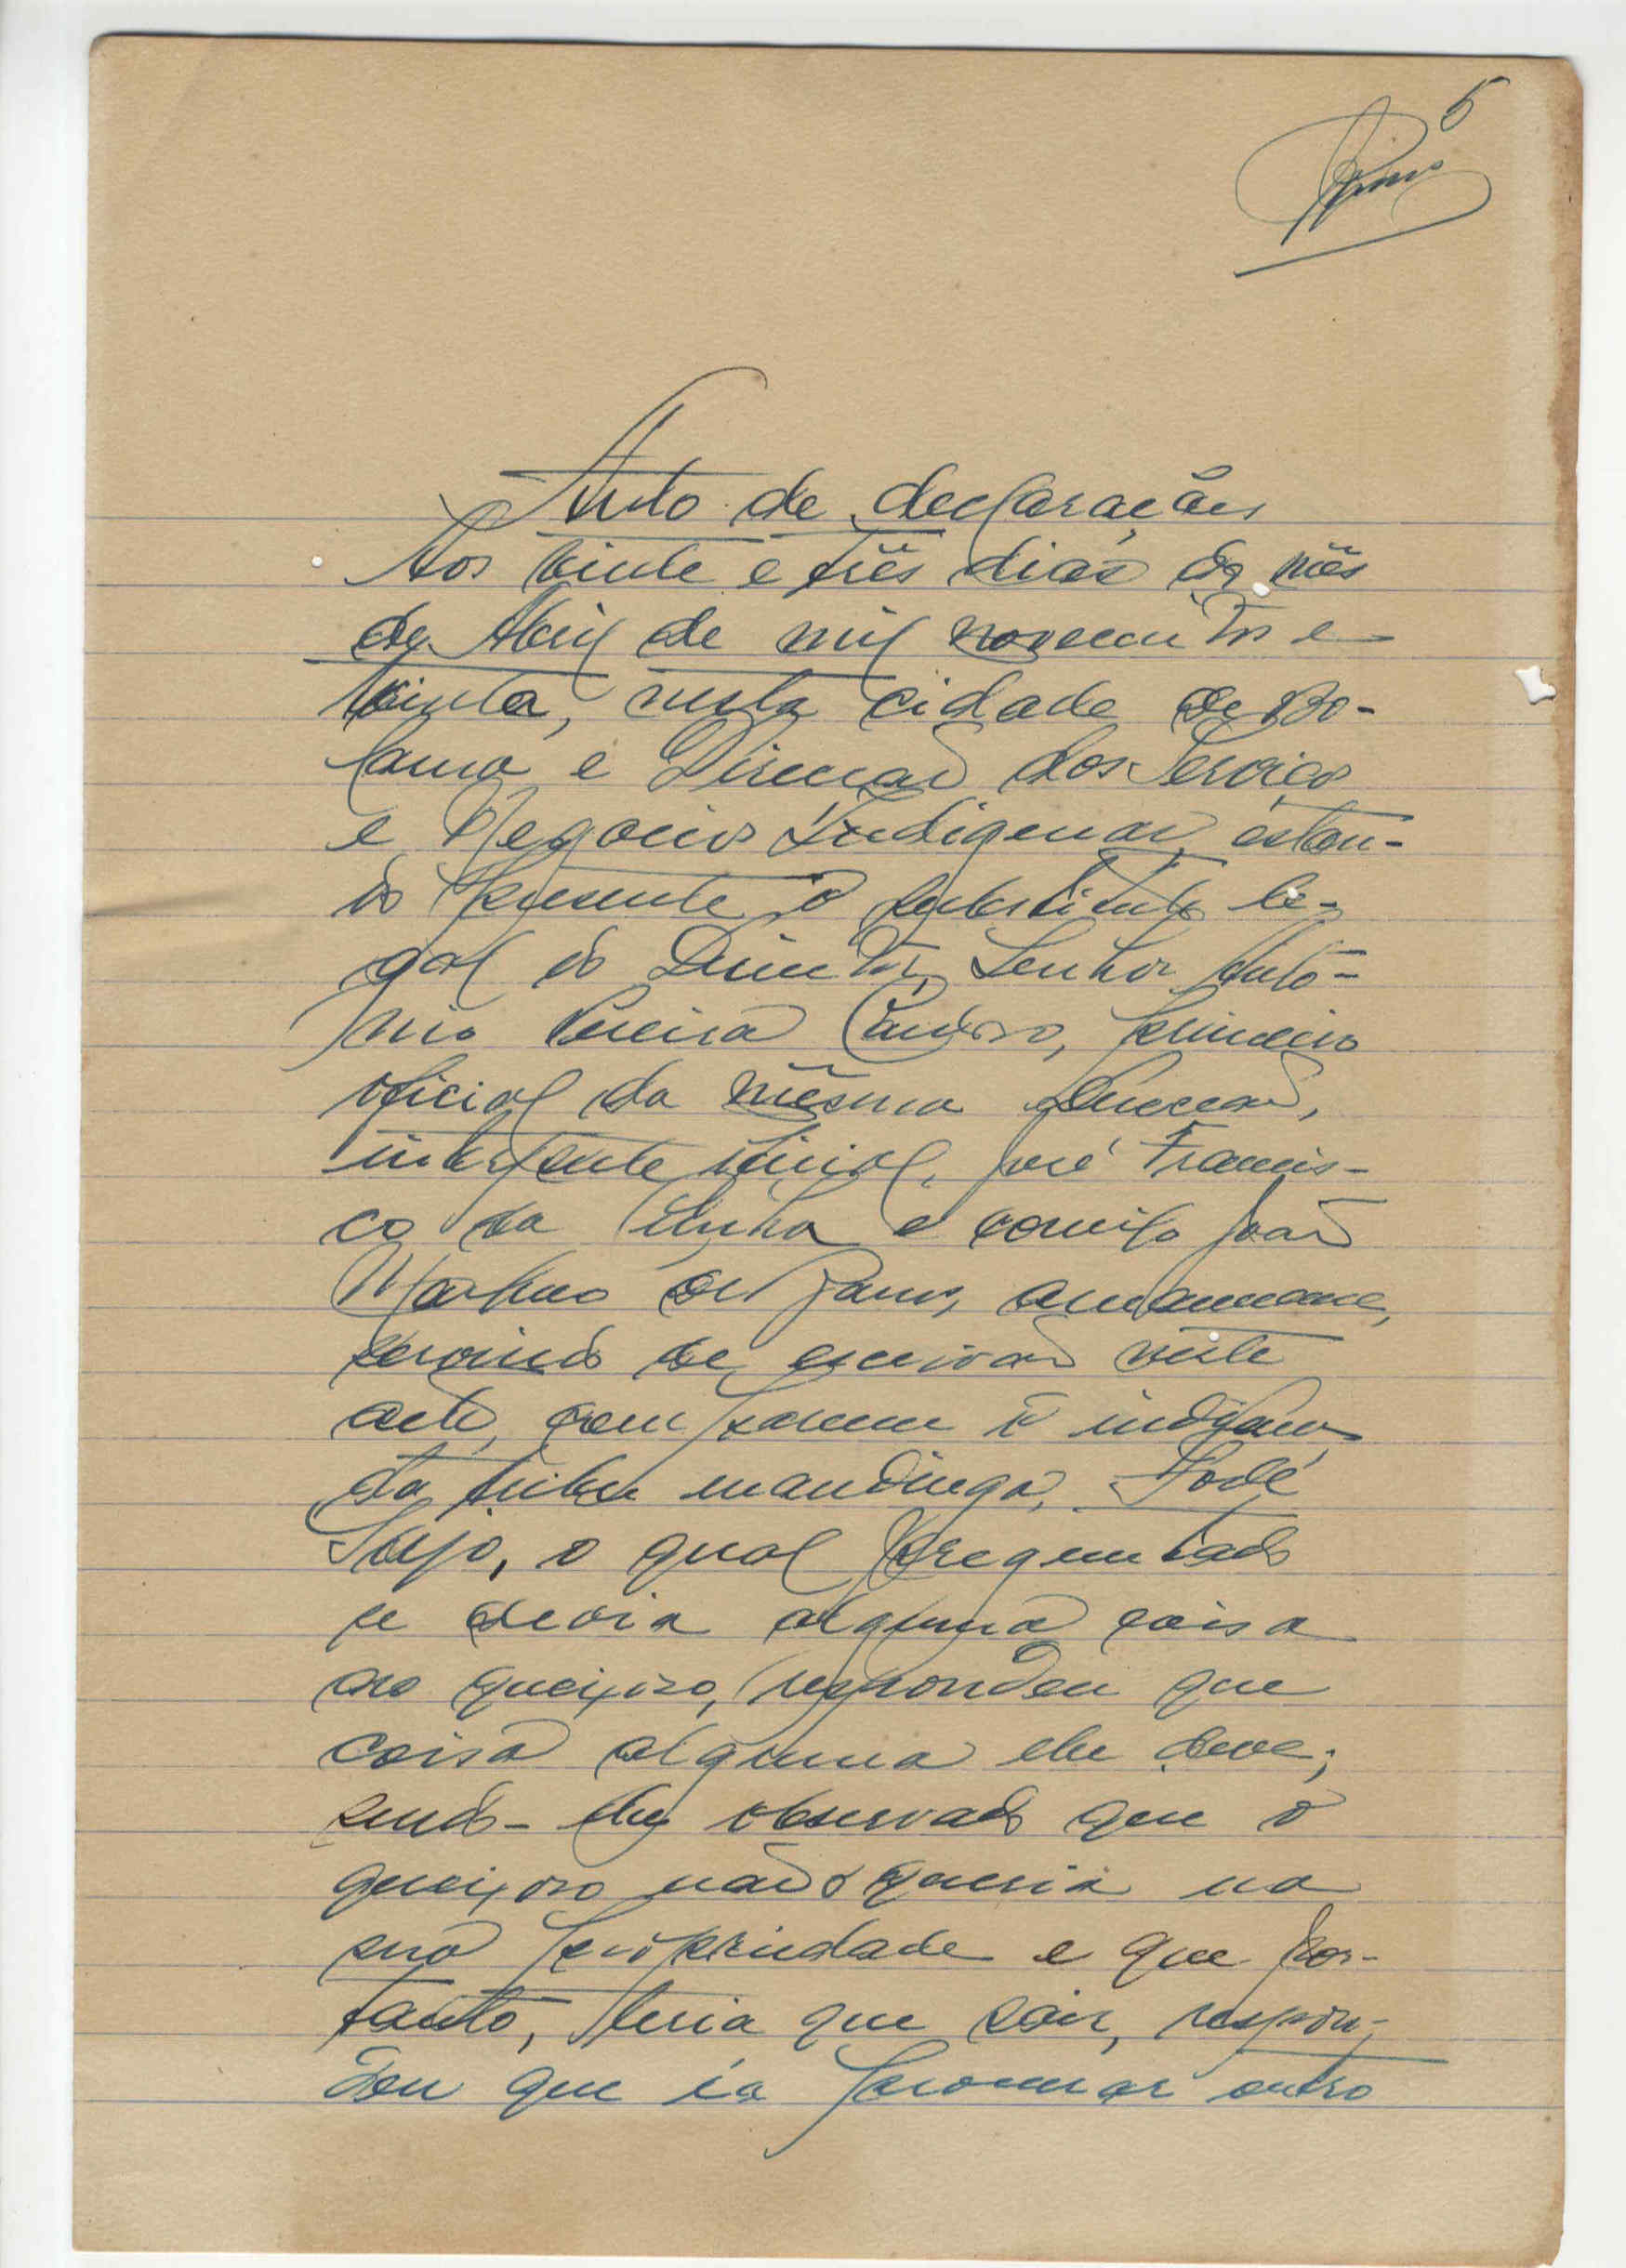 5
Auto de declarações
Aos vinte e três dias do mês
de Abril de mil novecentos e
trinta, nesta cidade de Bo-
lama e Direcção dos Serviços
e Negocios Indigenas, estan-
do presente o substituto le-
gal do Director, Senhor Antó-
nio Pereira Cardoso, primeiro
oficial da mêsma Direcção,
interprete oficial, José Francis-
co da Cunha e comigo João
de amanuense,
servindo de escrivão nêste
acto, compareceu o indigena
da tribu mandinga, Fodé
o qual preguntado
se devia alguma coisa
ao queixoso, respondeu que
coisa alguma lhe deve;
sendo-lhe observado que o
queixoso não o queria na
sua propriedade e que por-
tanto, teria que sair, respon-
deu que ía procurar outro